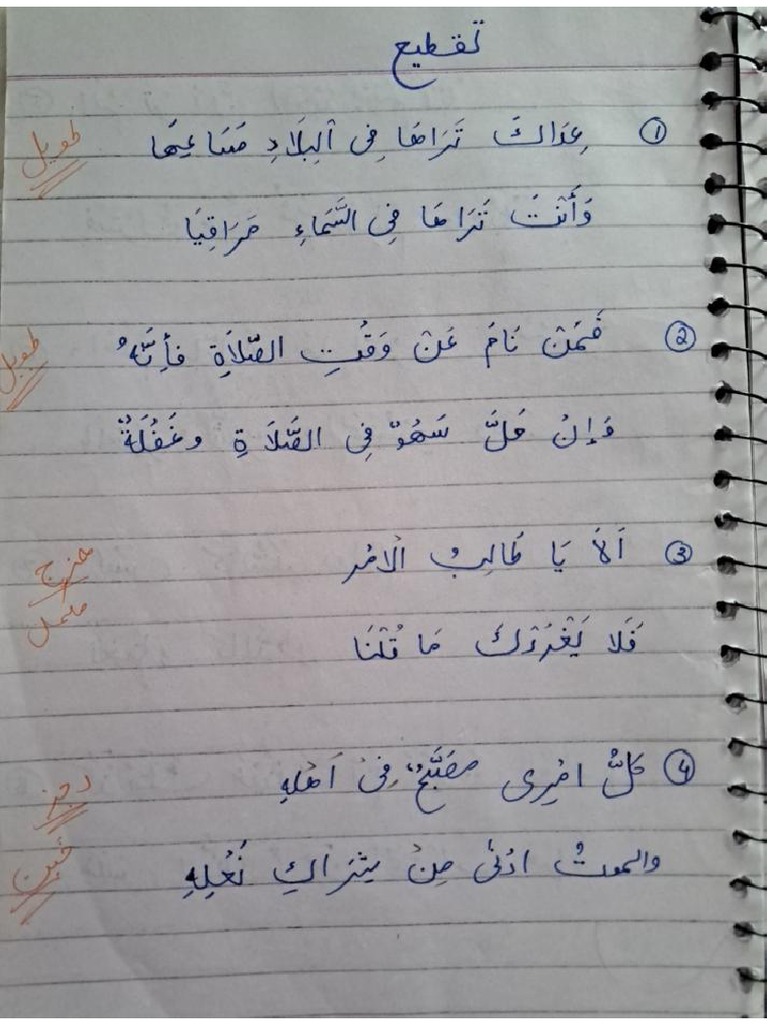 تقطيع
① عِدَاكَ تَرَاهَا فِى الْبِلَادِ مَسَاعِيًا طويل
وَأَنْتَ تَرَاهَا فِى السَّمَاءِ مَرَاقِيَا
② فَمَنْ نَامَ عَنْ وَقْتِ الصَّلَاةِ فَأِنَّهُ طويل
فَإِنْ قَلَّ سَهْوٌ فِى الصَّلَاةِ وغَفْلَةٌ
③ اَلَا يَا طَالِبُ الْامْرِ هزج
فَلَا يَغْرُرْكَ مَا قُلْنَا
④ كُلُّ امْرِى مصَبَّحٌ فِىْ اَهْلِهِ رجز
والموتُ ادْنَى مِنْ شِرَاكِ نَعْلِهِ خبن